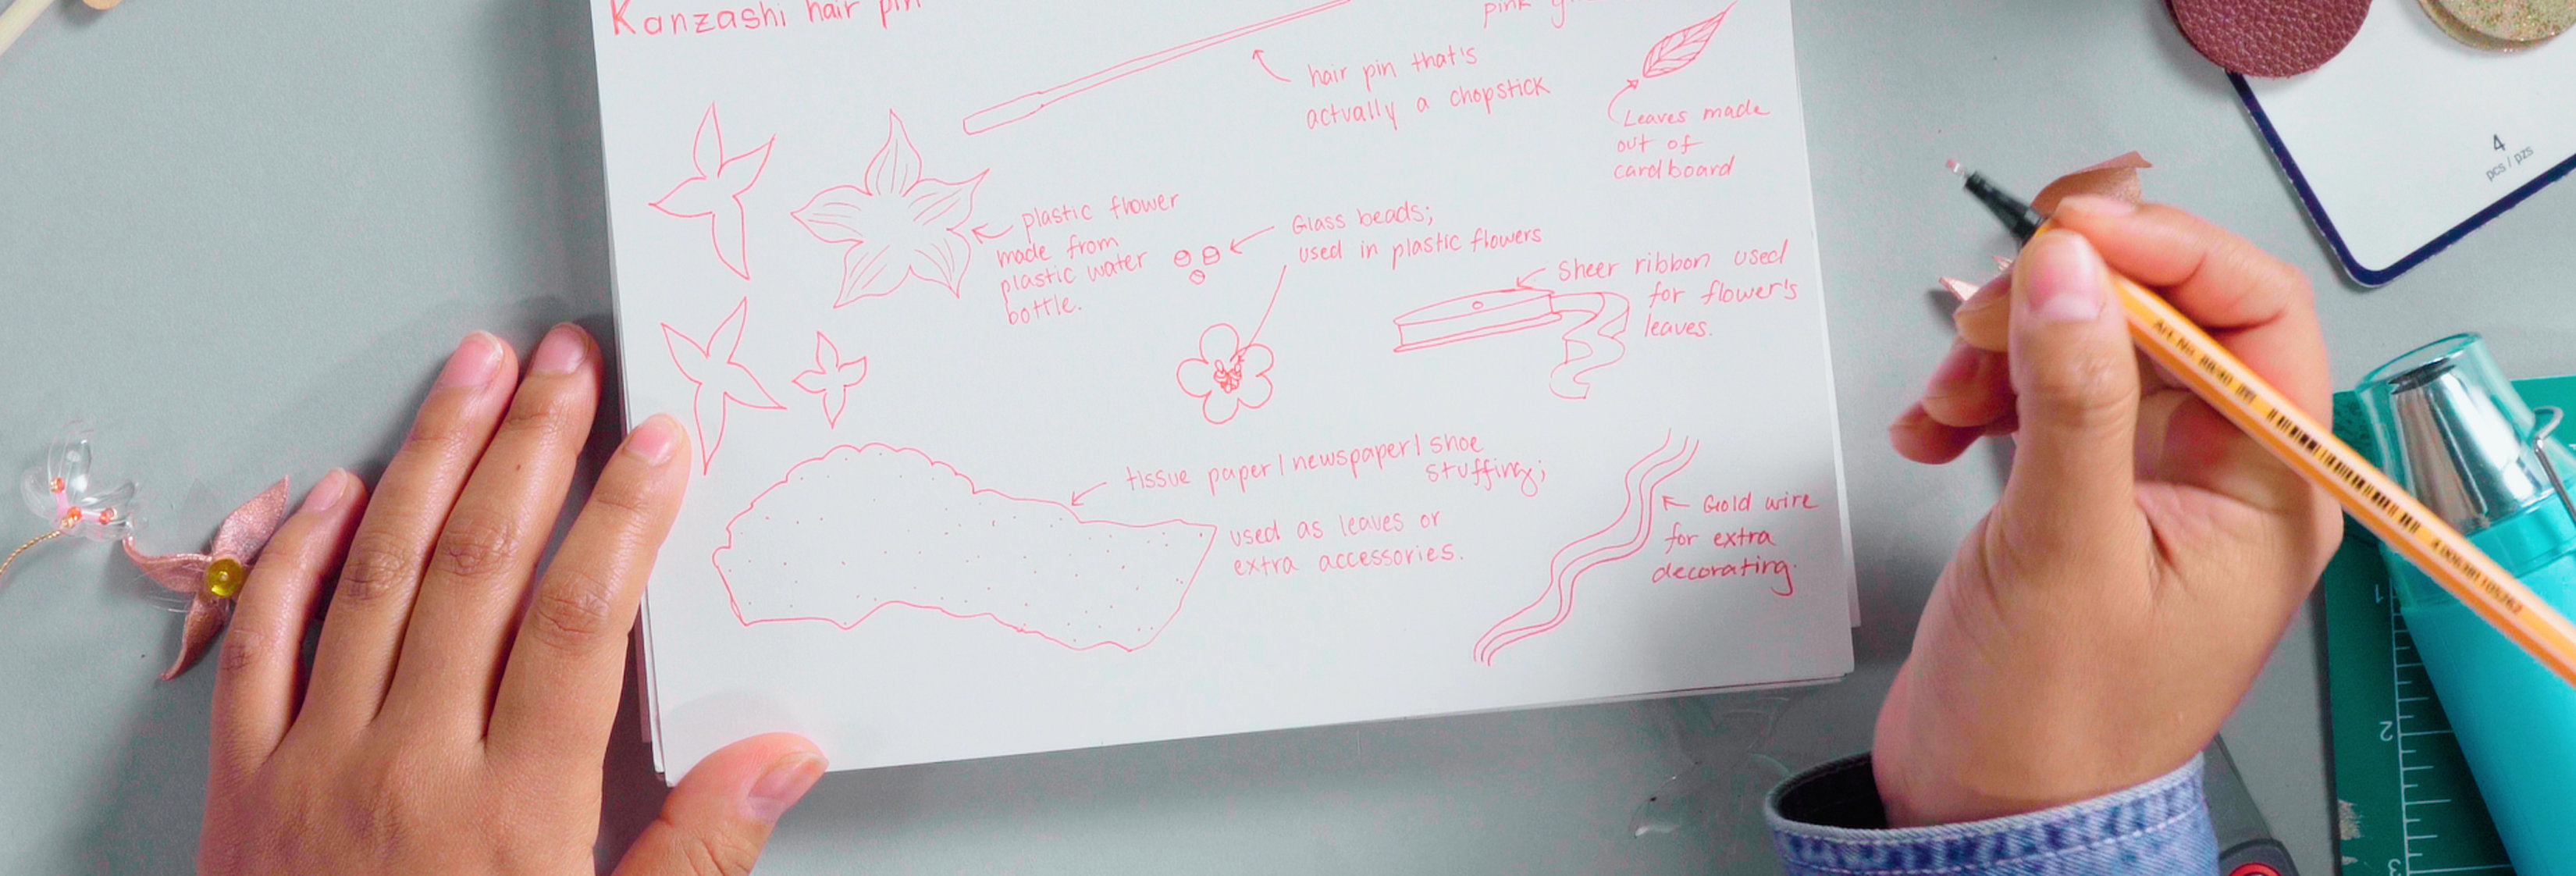 Kanzashi hair pin
pink
hair pin that's
actually a chopstick
Leaves made
out of
cardboard
plastic flower
made from
plastic water
bottle.
Glass beads;
used in plastic flowers
Sheer ribbon used
for flower's
leaves.
tissue paper/newspaper/shoe
stuffing;
used as leaves or
extra accessories.
Gold wire
for extra
decorating.
4
pcs / pzs
1
2
3